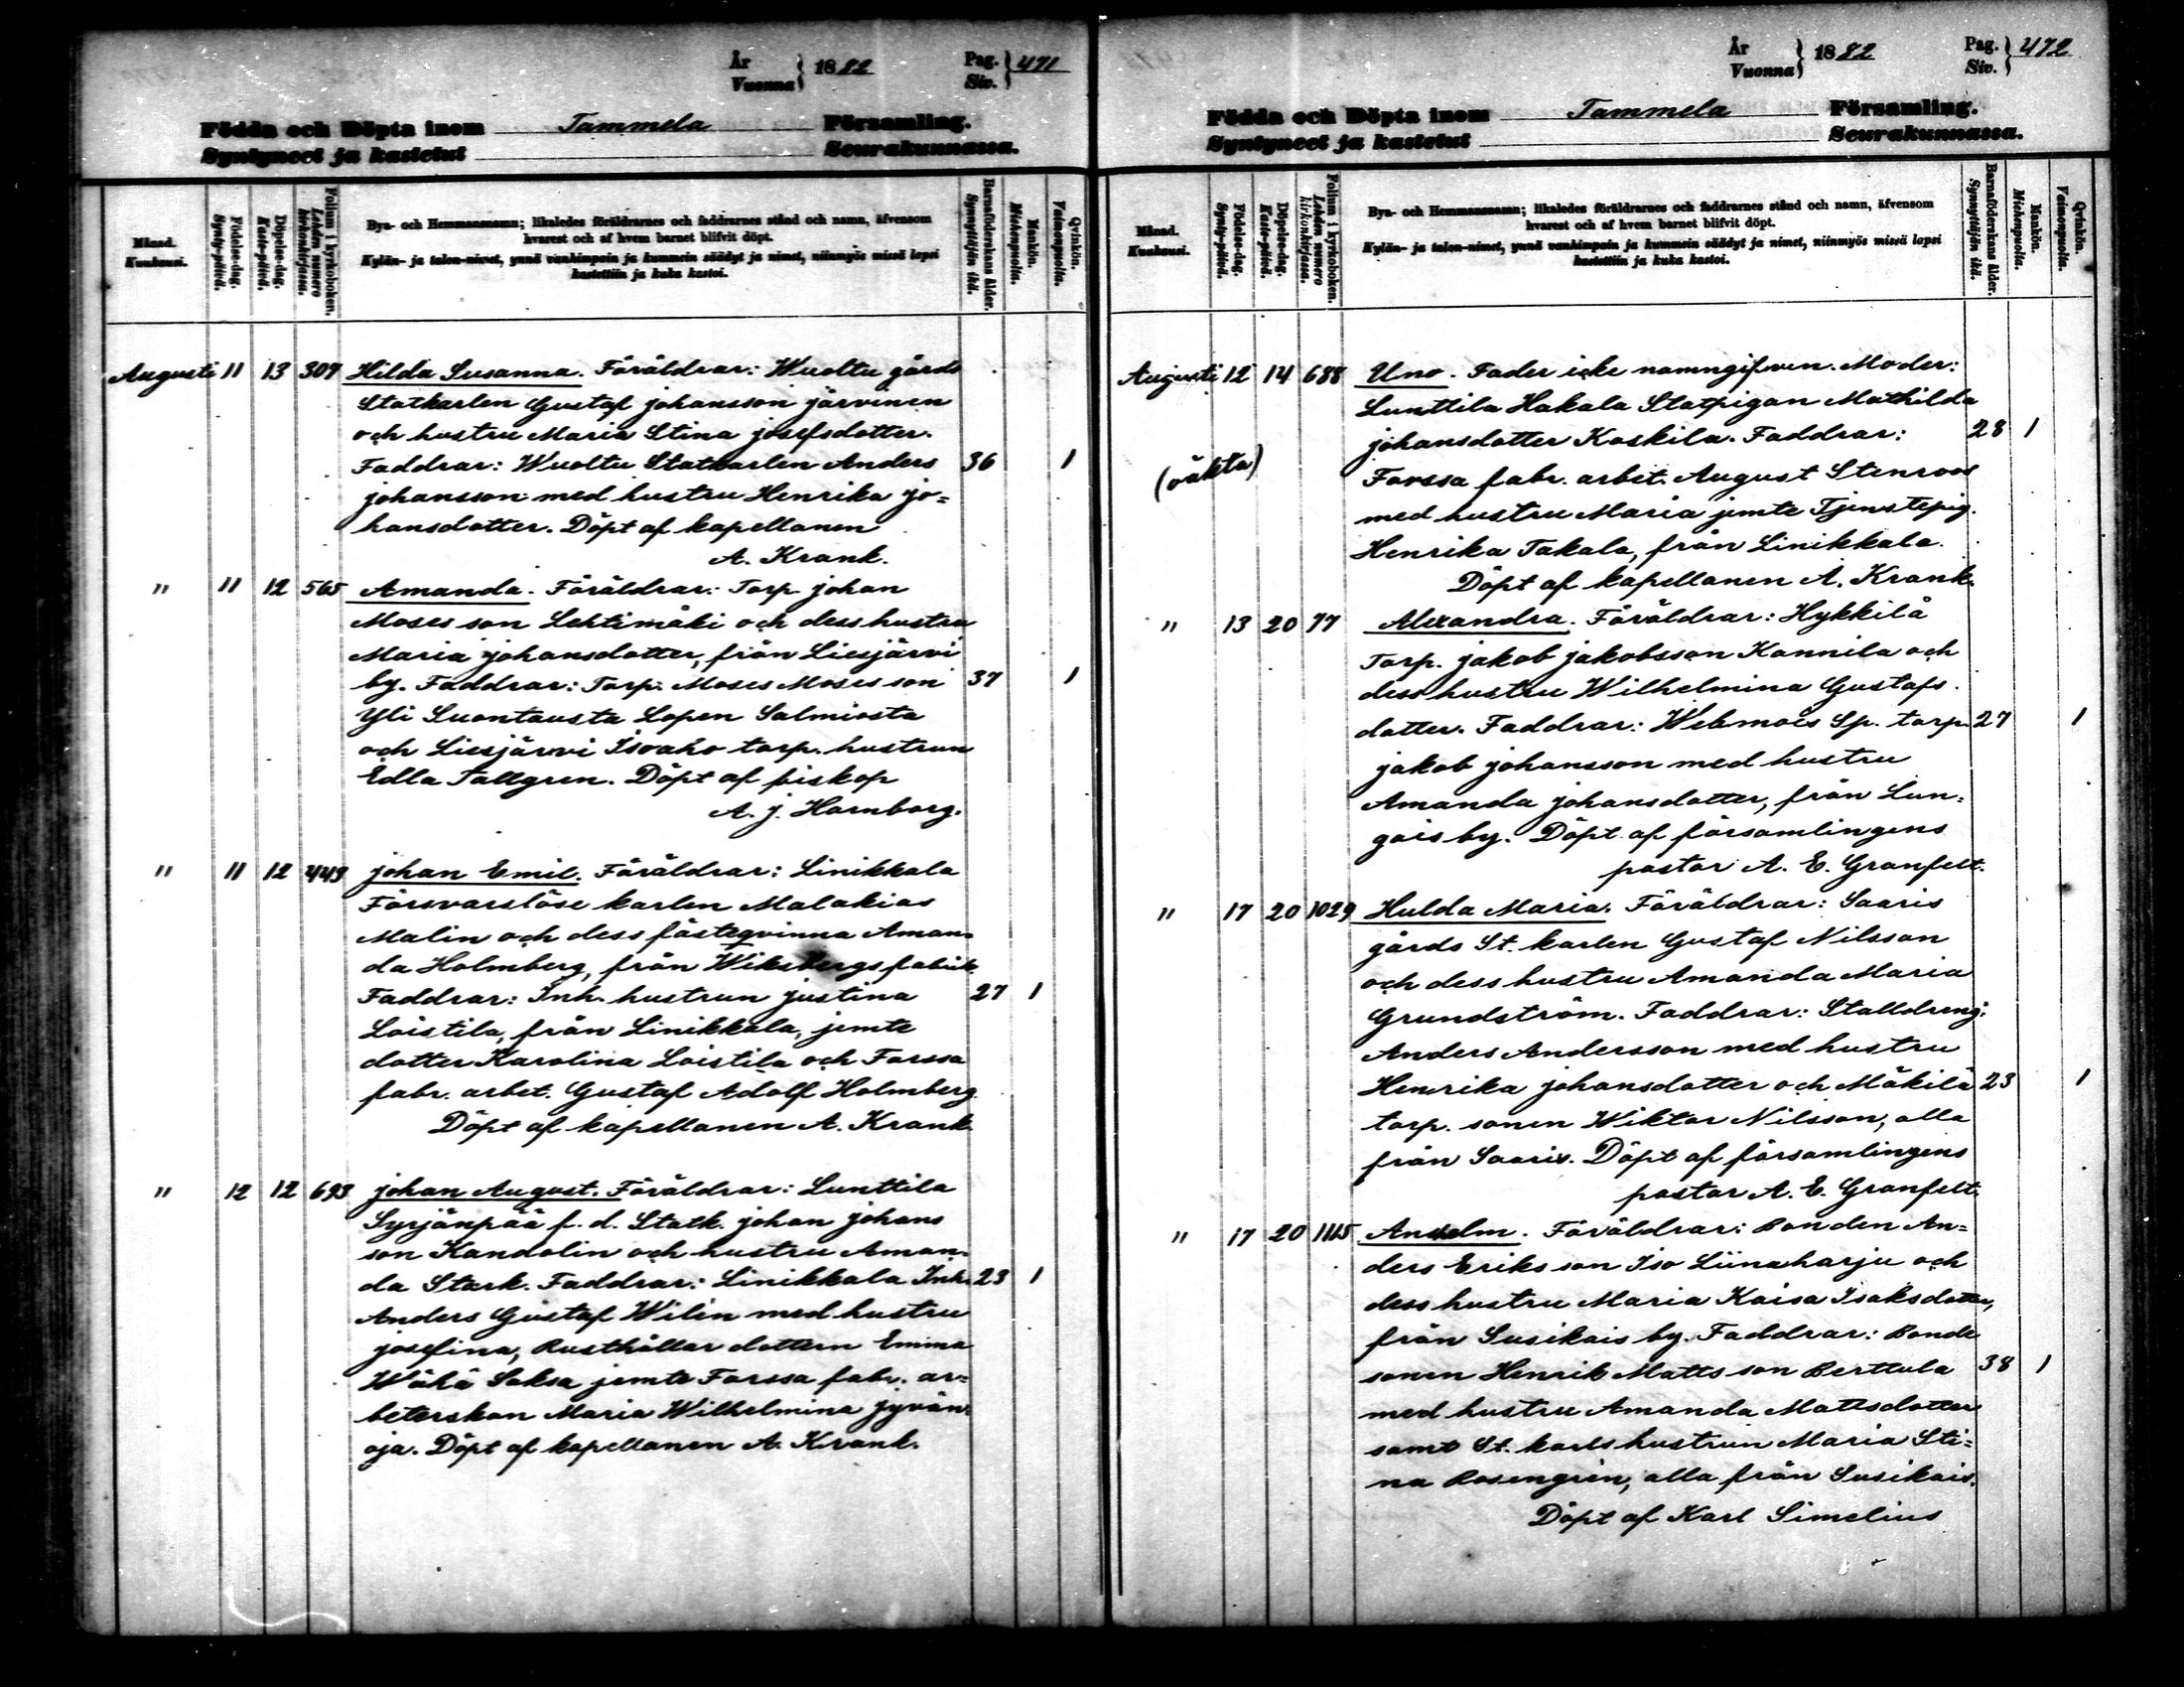 År
Vuonna } 1882 Pag.
Siv. } 471
Födda och Döpta inom Tammela Församling.
Syntyneet ja kastetut Seurakunnassa.
Månad.
Kuukausi.
Födelse-dag.
Synty-päivä.
Döpelse-dag.
Kaste-päivä.
Folium i kyrkoboken.
Lehden numero kirkonkirjassa.
Bya- och Hemmansnamn; likaledes föräldrarnes och faddrarnes stånd och namn, äfvensom
hvarest och af hvem barnet blifvit döpt.
Kylän- ja talon-nimet, ynnä vanhimpain ja kummein säädyt ja nimet, niinmyös missä lapsi
kastettiin ja kuka kastoi.
Barnaföderskans ålder.
Synnyttäjän ikä.
Mankön.
Miehenpuolta.
Qvinkön.
Vaimonpuolta.
Augusti 11 13 307 Hilda Susanna. Föräldrar: Wuoltu gårds
Statkarlen Gustaf johansson järvinen
och hustru Maria Stina josefsdotter.
Faddrar: Wuoltu Statkarlen Anders 36 1
johansson med hustru Henrika jo=
hansdotter. Döpt af kapellanen
A. Krank.
" 11 12 565 Amanda. Föräldrar: Torp. johan
Moses son Lehtimäki och dess hustru
Maria johansdotter, från Liesjärvi
by. Faddrar: Torp. Moses Moses son 37 1
Yli Suontausta Lopen Salmiosta
och Liesjärvi Isoaho torp. hustrun
Edla Tallgren. Döpt af biskop
A. j. Hornborg.
" 11 12 443 johan Emil. Föräldrar: Linikkala
Försvarslöse karlen Malakias
Malin och dess fästeqvinna Aman=
da Holmberg, från Wiksbergs fabrik.
Faddrar: Inh. hustrun justina 27 1
Loistila, från Linikkala, jemte
dotter Karolina Loistila och Forssa
fabr. arbet. Gustaf Adolf Holmberg.
Döpt af kapellanen A. Krank.
" 12 12 693 johan August. Föräldrar: Lunttila
Syrjänpää f. d. Statk. johan johans
son Kandolin och hustru Aman=
da Stark. Faddrar: Linikkala Inh. 23 1
Anders Gustaf Wilin med hustru
josefina, Rusthållar dottern Emma
Wähä Saksa jemte Forssa fabr. ar=
beterskan Maria Wilhelmina jyvän=
oja. Döpt af kapellanen A. Krank.
År
Vuonna } 1882 Pag.
Siv. } 472
Födda och Döpta inom Tammela Församling.
Syntyneet ja kastetut Seurakunnassa.
Månad.
Kuukausi.
Födelse-dag.
Synty-päivä.
Döpelse-dag.
Kaste-päivä.
Folium i kyrkoboken.
Lehden numero kirkonkirjassa.
Bya- och Hemmansnamn; likaledes föräldrarnes och faddrarnes stånd och namn, äfvensom
hvarest och af hvem barnet blifvit döpt.
Kylän- ja talon-nimet, ynnä vanhimpain ja kummein säädyt ja nimet, niinmyös missä lapsi
kastettiin ja kuka kastoi.
Barnaföderskans ålder.
Synnyttäjän ikä.
Mankön.
Miehenpuolta.
Qvinkön.
Vaimonpuolta.
Augusti 12 14 688 Uno. Fader icke namngifven. Moder:
Lunttila Hakala Statpigan Mathilda
johansdotter Koskila. Faddrar: 28 1
(oäkta) Forssa fabr. arbet. August Stenroos
med hustru Maria jemte Tjenstepig.
Henrika Takala, från Linikkala.
Döpt af kapellanen A. Krank.
" 13 20 77 Alexandra. Föräldrar: Hykkilä
Torp. jakob jakobsson Kannila och
dess hustru Wilhelmina Gustafs
dotter. Faddrar: Wehmois Sp. torp. 27 1
jakob johansson med hustru
Amanda johansdotter, från Lun=
gois by. Döpt af församlingens
pastor A. E. Granfelt.
" 17 20 1029 Hulda Maria. Föräldrar: Saaris
gårds St. karlen Gustaf Nilsson
och dess hustru Amanda Maria
Grundström. Faddrar: Stalldreng.
Anders Andersson med hustru
Henrika johansdotter och Mäkilä 23 1
torp. sonen Wiktor Nilsson, alla
från Saaris. Döpt af församlingens
pastor A. E. Granfelt.
" 17 20 1165 Anshelm. Föräldrar: Bonden An=
ders Eriks son Iso Liinaharju och
dess hustru Maria Kaisa Isaksdotter,
från Susikais by. Faddrar: Bonde
sonen Henrik Matts son Perttula 38 1
med hustru Amanda Mattsdotter
samt St. karls hustrun Maria Sti=
na Rosengrén, alla från Susikais.
Döpt af Karl Simelius